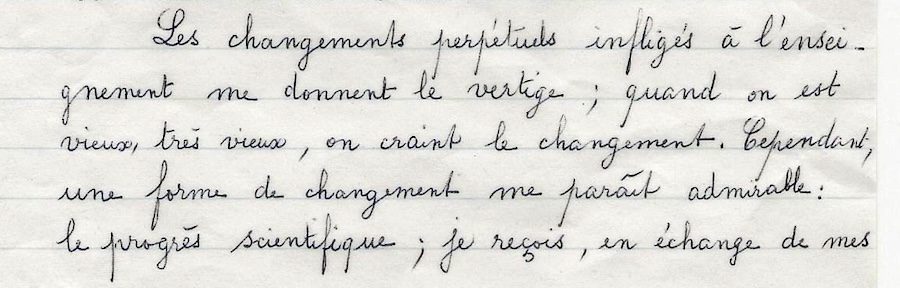 Les changements perpétuels infligés à l'ensei-
gnement me donnent le vertige ; quand on est
vieux, très vieux, on craint le changement. Cependant,
une forme de changement me paraît admirable :
le progrès scientifique ; je reçois, en échange de mes